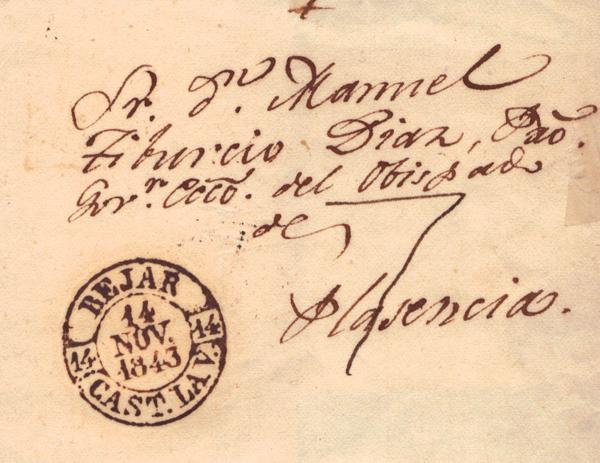 Sr. Dn. Manuel
Tiburcio Diaz, Pbro.
Gorr. Ecco. del Obispado
de
Plasencia.
BEJAR
14
NOV.
1843
14
14
CAST. LA V.